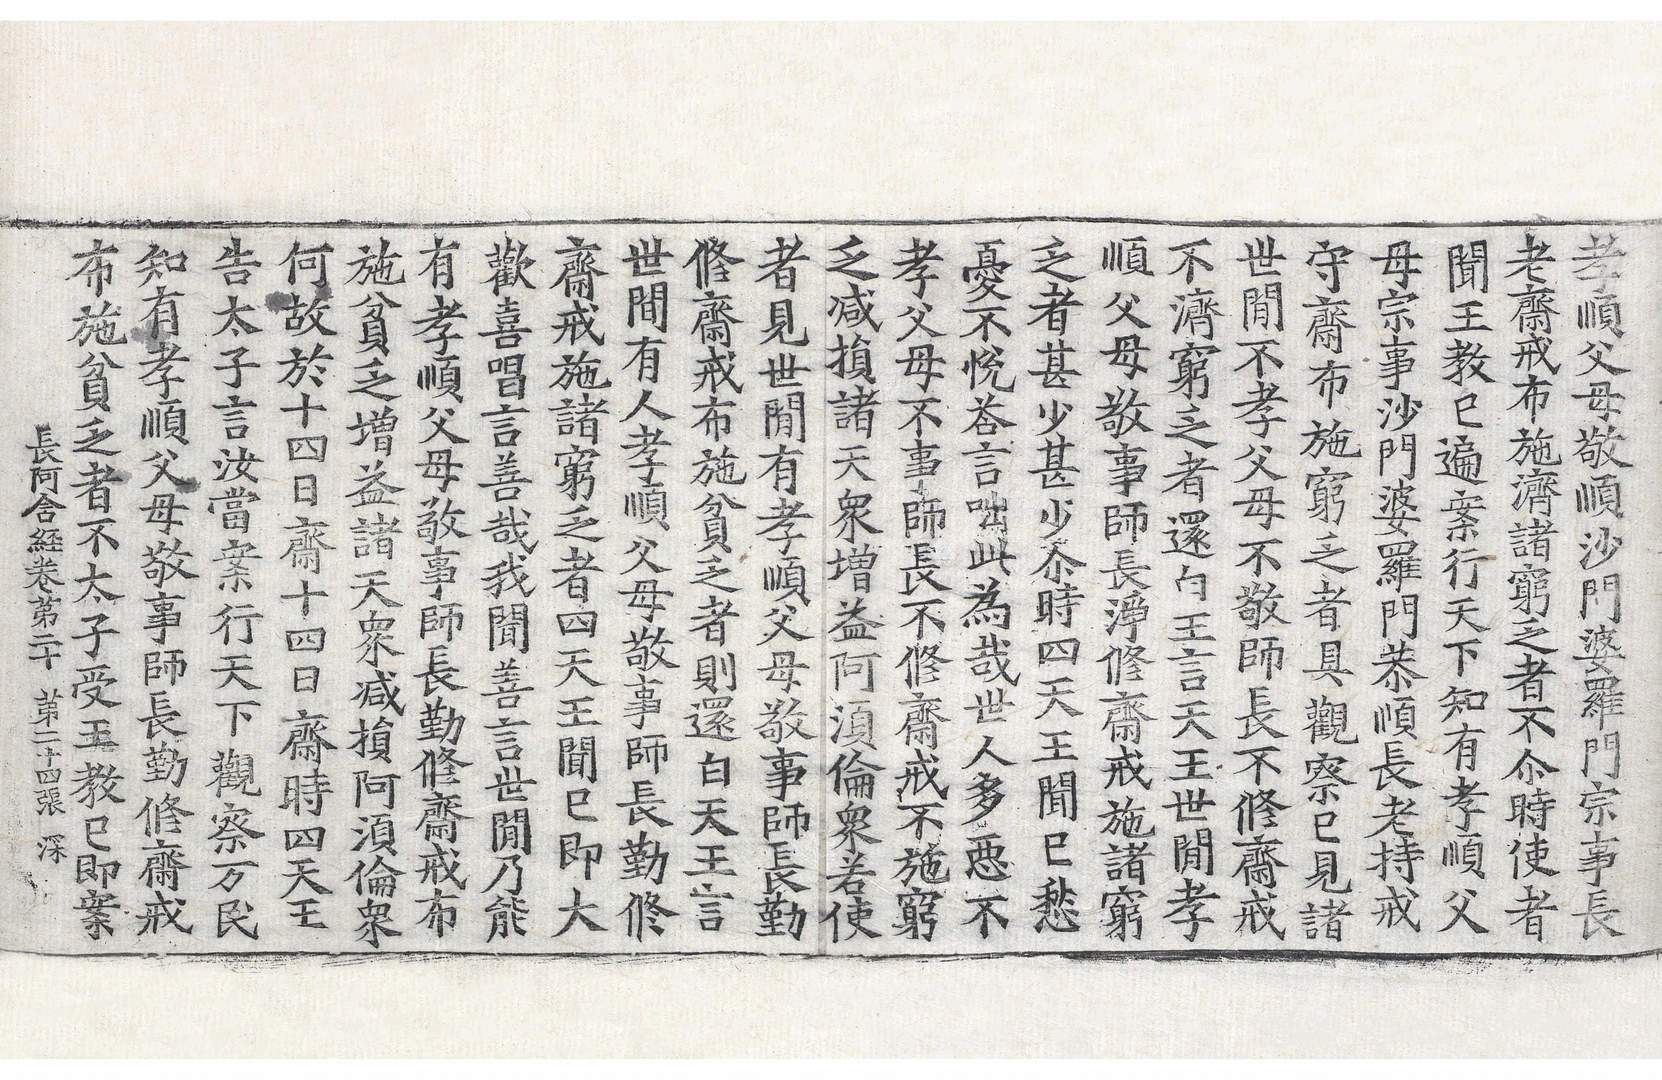 孝順父母敬順沙門婆羅門宗事長
老齋戒布施濟諸窮乏者不尒時使者
聞王教已遍案行天下知有孝順父
母宗事沙門婆羅門恭順長老持戒
守齋布施窮乏者具觀察已見諸
世間不孝父母不敬師長不修齋戒
不濟窮乏者還白王言天王世間孝
順父母敬事師長淨修齋戒施諸窮
乏者甚少甚少尒時四天王聞已愁
憂不悅荅言咄此為哉世人多惡不
孝父母不事師長不修齋戒不施窮
乏減損諸天眾增益阿湏倫眾若使
者見世間有孝順父母敬事師長勤
修齋戒布施貧乏者則還白天王言
世間有人孝順父母敬事師長勤修
齋戒施諸窮乏者四天王聞已即大
歡喜唱言善哉我聞善言世間乃能
有孝順父母敬事師長勤修齋戒布
施貧乏增益諸天眾減損阿湏倫眾
何故於十四日齋十四日齋時四天王
告太子言汝當案行天下觀察万民
知有孝順父母敬事師長勤修齋戒
布施貧乏者不太子受王教已即案
長阿含経卷第二十　第二十四張　深